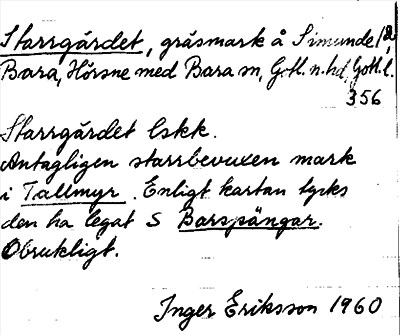 Starrgärdet, gräsmark å Simunde 1/2,
Bara, Hörsne med Bara sn, Gotl. n. hd, Gotl. l.
356
Starrgärdet lskk.
Antagligen starrbevuxen mark
i Tallmyr. Enligt kartan tycks
den ha legat S Barspängar.
Obrukligt.
Inger Eriksson 1960